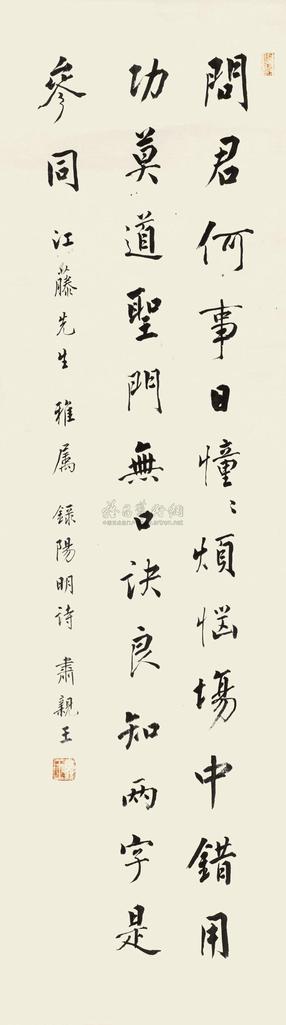 問君何事日憧〻煩惱場中錯用
功莫道聖門無口訣良知兩字是
參同 江藤先生 雅属 錄陽明诗 肅親王
雅昌藝術網